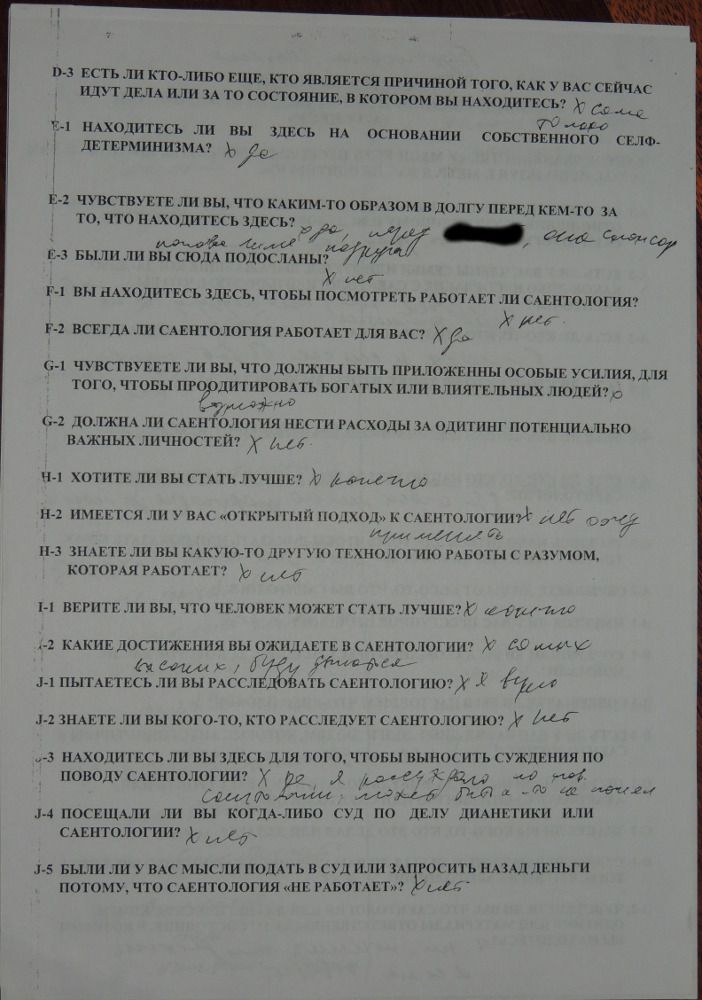 D-3 ЕСТЬ ЛИ КТО-ЛИБО ЕЩЕ, КТО ЯВЛЯЕТСЯ ПРИЧИНОЙ ТОГО, КАК У ВАС СЕЙЧАС
ИДУТ ДЕЛА ИЛИ ЗА ТО СОСТОЯНИЕ, В КОТОРОМ ВЫ НАХОДИТЕСЬ? X сама
только
E-1 НАХОДИТЕСЬ ЛИ ВЫ ЗДЕСЬ НА ОСНОВАНИИ СОБСТВЕННОГО СЕЛФ-
ДЕТЕРМИНИЗМА? X да
E-2 ЧУВСТВУЕТЕ ЛИ ВЫ, ЧТО КАКИМ-ТО ОБРАЗОМ В ДОЛГУ ПЕРЕД КЕМ-ТО ЗА
ТО, ЧТО НАХОДИТЕСЬ ЗДЕСЬ? X да, перед , она спонсор
подруга
E-3 БЫЛИ ЛИ ВЫ СЮДА ПОДОСЛАНЫ?
X нет
F-1 ВЫ НАХОДИТЕСЬ ЗДЕСЬ, ЧТОБЫ ПОСМОТРЕТЬ РАБОТАЕТ ЛИ САЕНТОЛОГИЯ?
X нет.
F-2 ВСЕГДА ЛИ САЕНТОЛОГИЯ РАБОТАЕТ ДЛЯ ВАС? X да
G-1 ЧУВСТВУЕЕТЕ ЛИ ВЫ, ЧТО ДОЛЖНЫ БЫТЬ ПРИЛОЖЕННЫ ОСОБЫЕ УСИЛИЯ, ДЛЯ
ТОГО, ЧТОБЫ ПРООДИТИРОВАТЬ БОГАТЫХ ИЛИ ВЛИЯТЕЛЬНЫХ ЛЮДЕЙ? X
возможно
G-2 ДОЛЖНА ЛИ САЕНТОЛОГИЯ НЕСТИ РАСХОДЫ ЗА ОДИТИНГ ПОТЕНЦИАЛЬНО
ВАЖНЫХ ЛИЧНОСТЕЙ? X нет.
H-1 ХОТИТЕ ЛИ ВЫ СТАТЬ ЛУЧШЕ? X конечно
H-2 ИМЕЕТСЯ ЛИ У ВАС «ОТКРЫТЫЙ ПОДХОД» К САЕНТОЛОГИИ? X нет хочу
применять
H-3 ЗНАЕТЕ ЛИ ВЫ КАКУЮ-ТО ДРУГУЮ ТЕХНОЛОГИЮ РАБОТЫ С РАЗУМОМ,
КОТОРАЯ РАБОТАЕТ? X нет
I-1 ВЕРИТЕ ЛИ ВЫ, ЧТО ЧЕЛОВЕК МОЖЕТ СТАТЬ ЛУЧШЕ? X конечно
-2 КАКИЕ ДОСТИЖЕНИЯ ВЫ ОЖИДАЕТЕ В САЕНТОЛОГИИ? X самых
высоких, буду
J-1 ПЫТАЕТЕСЬ ЛИ ВЫ РАССЛЕДОВАТЬ САЕНТОЛОГИЮ? X я
J-2 ЗНАЕТЕ ЛИ ВЫ КОГО-ТО, КТО РАССЛЕДУЕТ САЕНТОЛОГИЮ? X нет
-3 НАХОДИТЕСЬ ЛИ ВЫ ЗДЕСЬ ДЛЯ ТОГО, ЧТОБЫ ВЫНОСИТЬ СУЖДЕНИЯ ПО
ПОВОДУ САЕНТОЛОГИИ? X я рассуждаю по пов.
саентологии, может быть не понял
J-4 ПОСЕЩАЛИ ЛИ ВЫ КОГДА-ЛИБО СУД ПО ДЕЛУ ДИАНЕТИКИ ИЛИ
САЕНТОЛОГИИ? X нет
J-5 БЫЛИ ЛИ У ВАС МЫСЛИ ПОДАТЬ В СУД ИЛИ ЗАПРОСИТЬ НАЗАД ДЕНЬГИ
ПОТОМУ, ЧТО САЕНТОЛОГИЯ «НЕ РАБОТАЕТ»? X нет